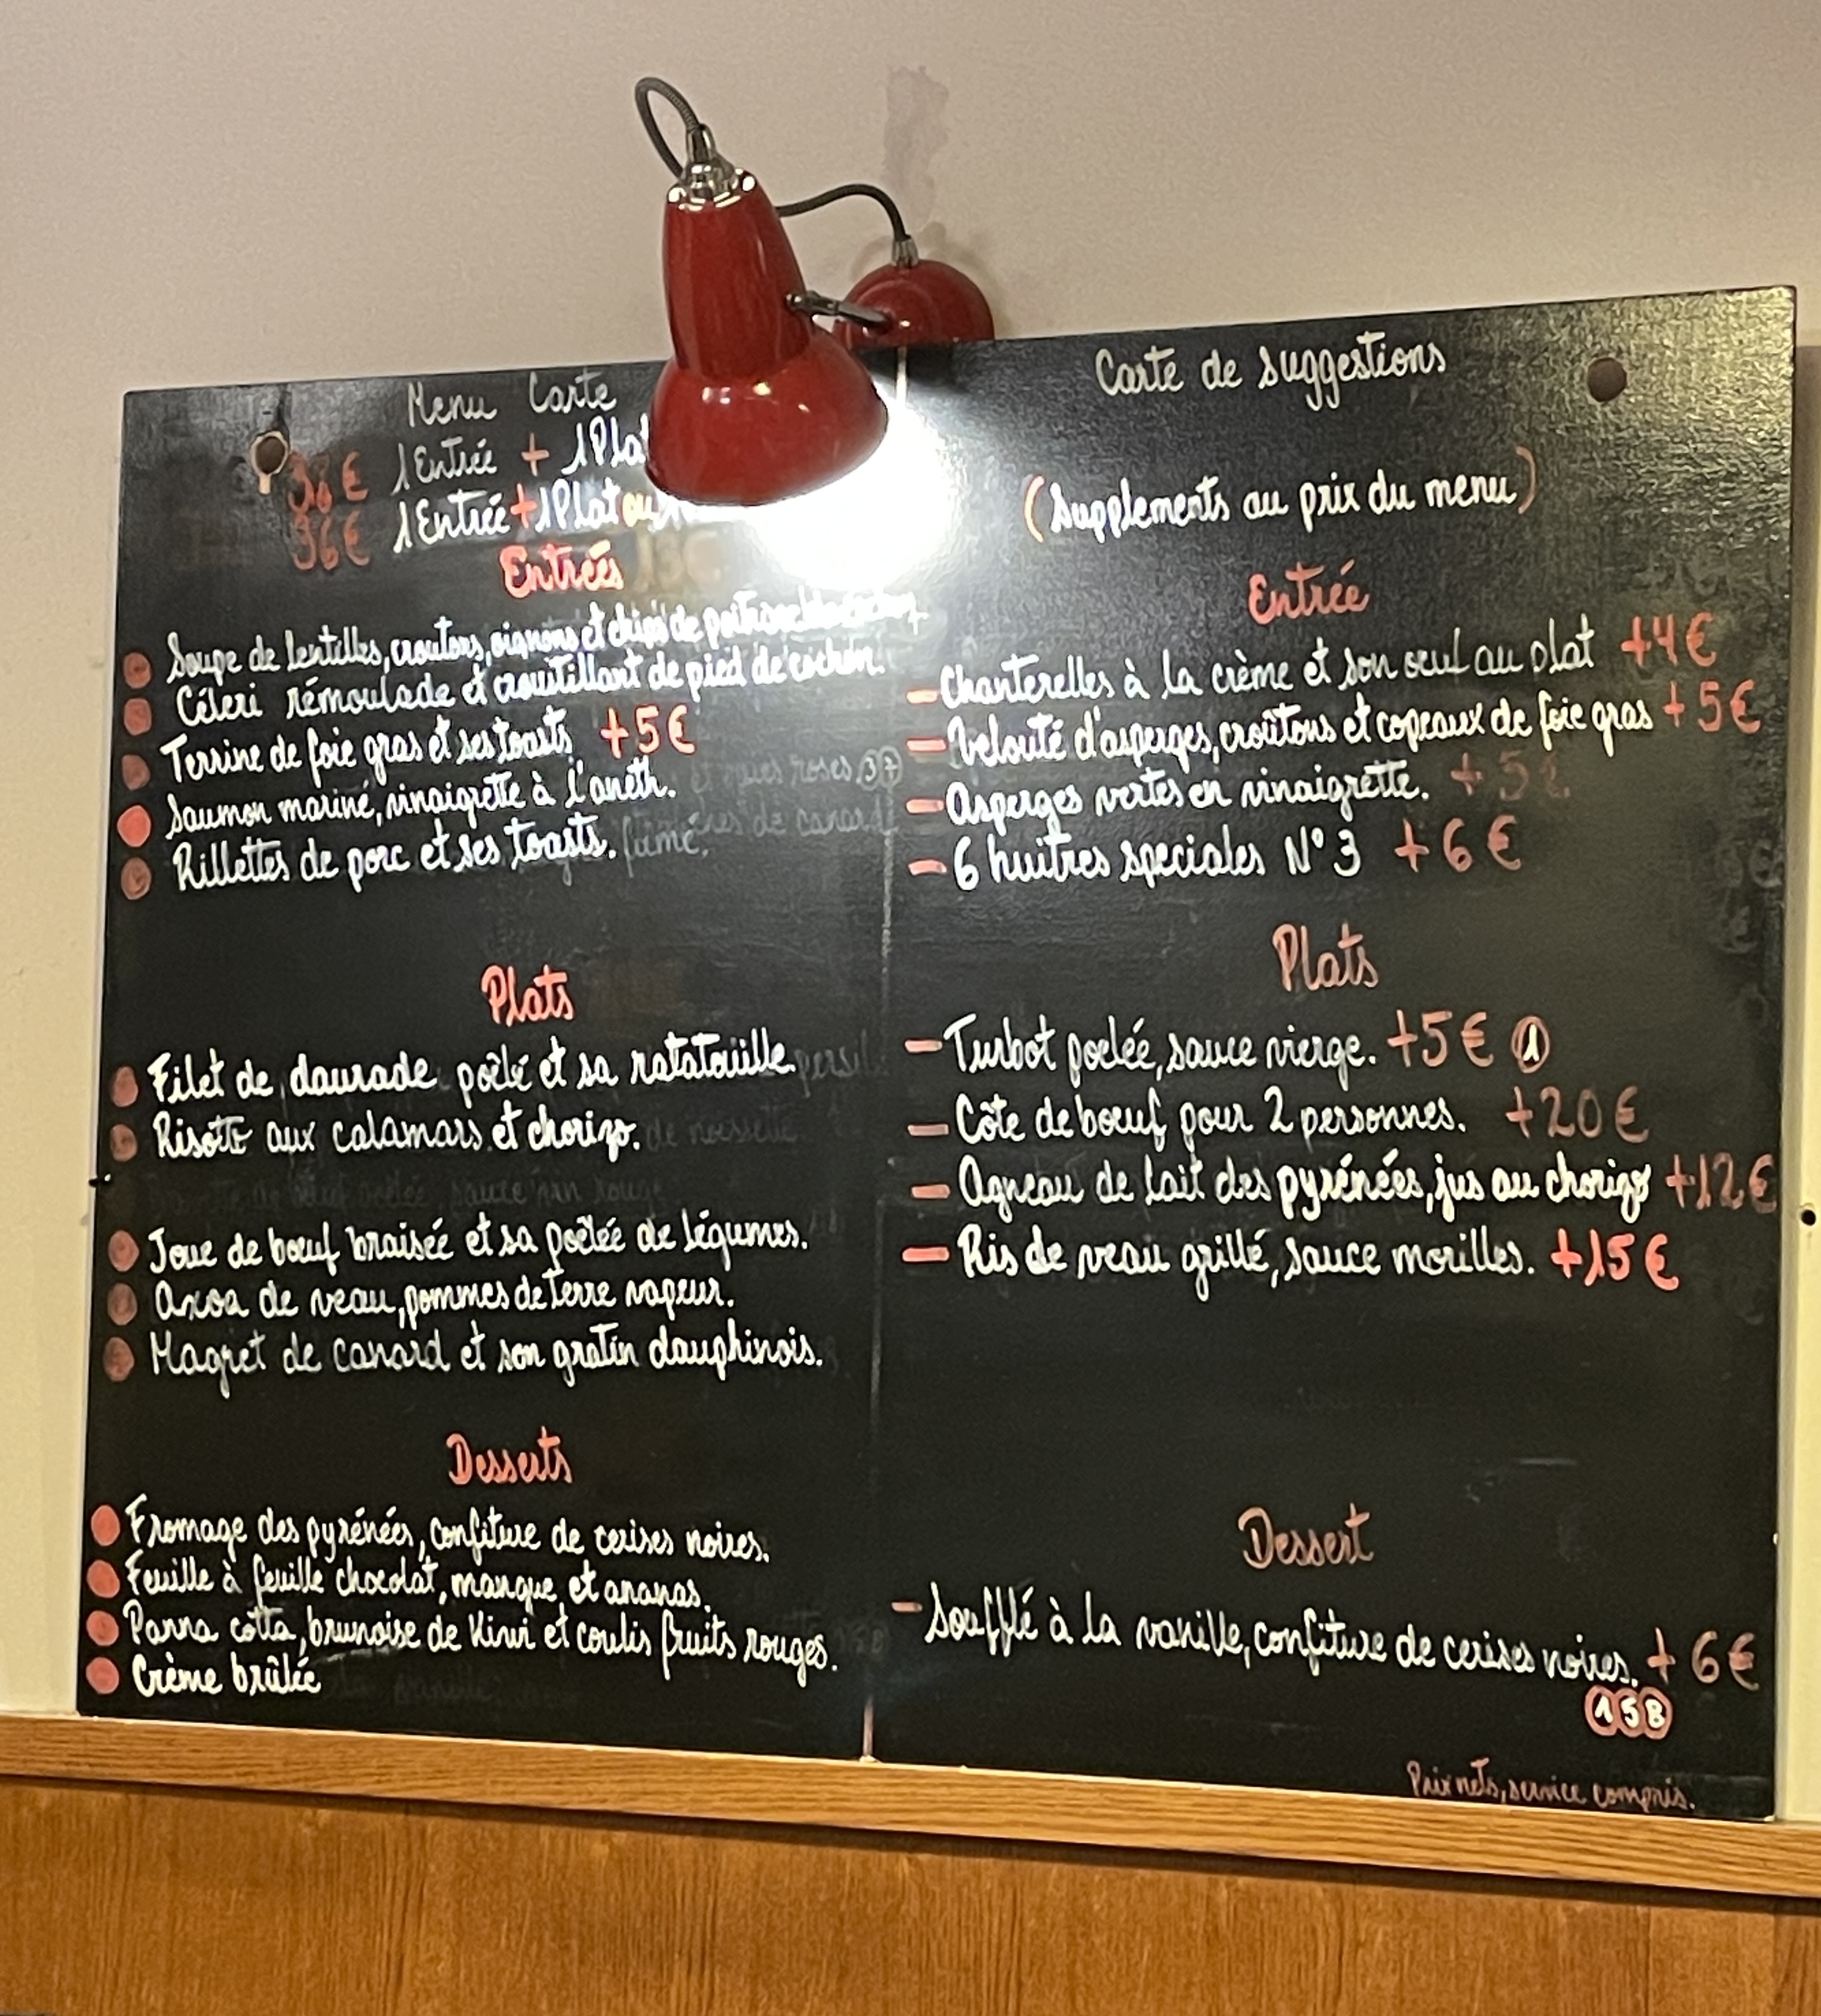 Menu Carte
38€ 1 Entrée + 1 Plat
36€ 1 Entrée + 1 Plat ou
Entrées
Soupe de lentilles, croutons, oignons et chips de poitrine de cochon.
Céleri rémoulade et croustillant de pied de cochon.
Terrine de foie gras et ses toasts +5€
Saumon mariné, vinaigrette à l'aneth.
Rillettes de porc et ses toasts.
Plats
Filet de daurade poêlé et sa ratatouille
Risotto aux calamars et chorizo.
Joue de bœuf braisée et sa poêlée de légumes.
Axoa de veau, pommes de terre vapeur.
Magret de canard et son gratin dauphinois.
Desserts
Fromage des pyrénées, confiture de cerises noires.
Feuille à feuille chocolat, mangue, et ananas.
Panna cotta, brunoise de Kiwi et coulis fruits rouges.
Crème brûlée
Carte de suggestions
(supplements au prix du menu)
Entrée
- Chanterelles à la crème et son oeuf au plat +4€
- Velouté d'asperges, croûtons et copeaux de foie gras +5€
- Asperges vertes en vinaigrette. +5€
- 6 huitres speciales N°3 +6€
Plats
- Turbot poelée, sauce vierge. +5€ 1
- Côte de bœuf pour 2 personnes. +20€
- Agneau de lait des pyrénées, jus au chorizo +12€
- Ris de veau grillé, sauce morilles. +15€
Dessert
- Soufflé à la vanille, confiture de cerises noires. + 6€
1 5 8
Prix nets, service compris.